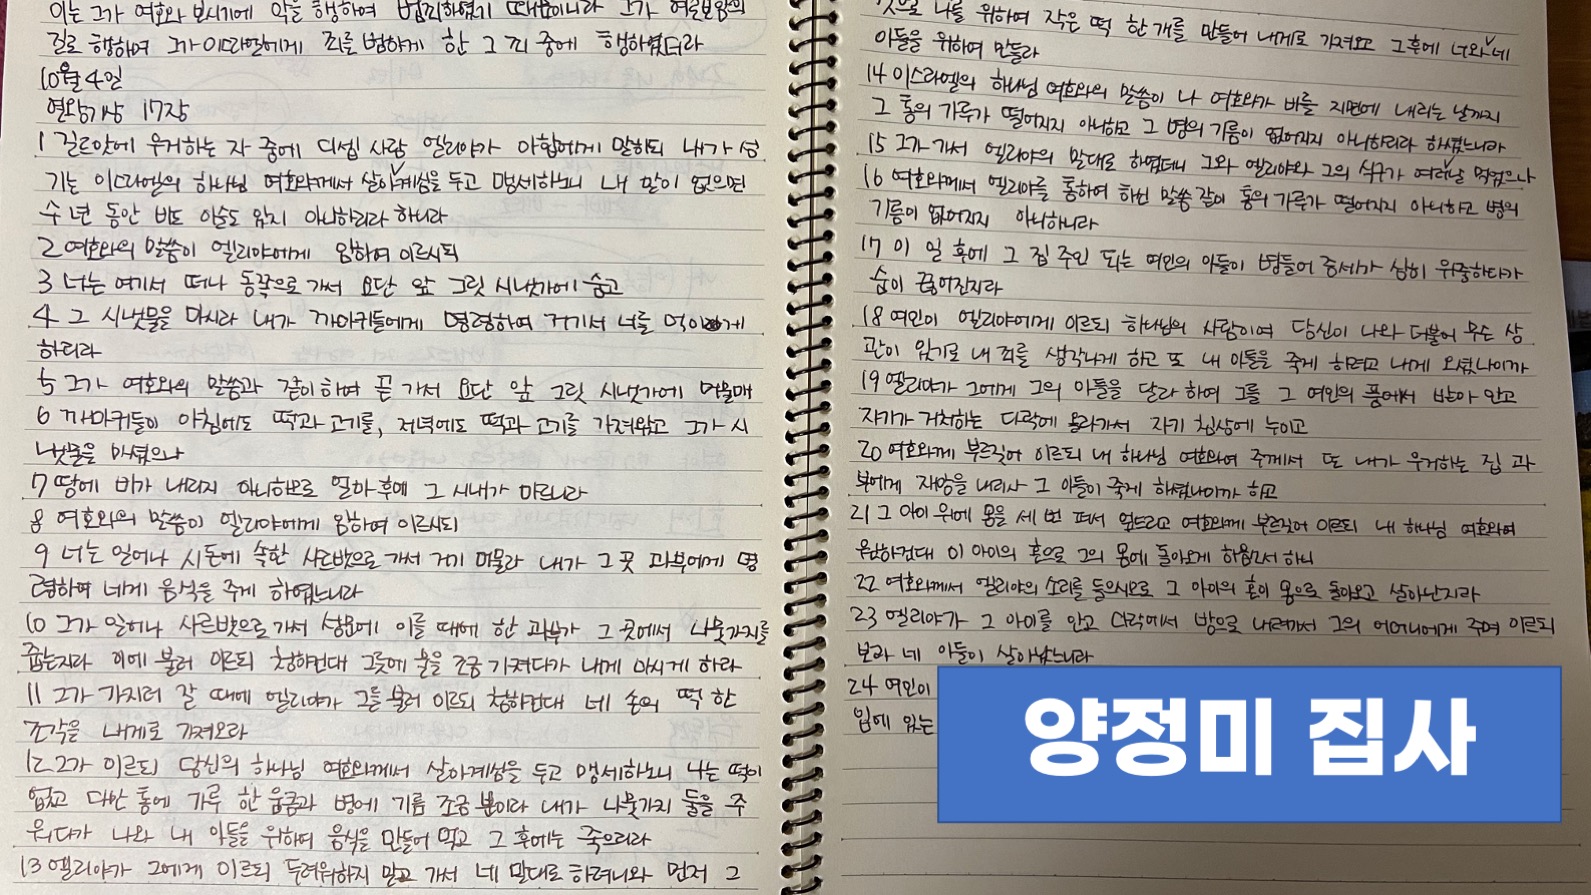 이는 그가 여호와 보시기에 악을 행하여 범죄하였기 때문이니라 그가 여로보암의
길로 행하며 그가 이스라엘에게 죄를 범하게 한 그 죄 중에 행하였더라
10월 4일
열왕기상 17장
1 길르앗에 우거하는 자 중에 디셉 사람 엘리야가 아합에게 말하되 내가 섬
기는 이스라엘의 하나님 여호와께서 살아계심을 두고 맹세하노니 내 말이 없으면
수 년 동안 비도 이슬도 있지 아니하리라 하니라
2 여호와의 말씀이 엘리야에게 임하여 이르시되
3 너는 여기서 떠나 동쪽으로 가서 요단 앞 그릿 시냇가에 숨고
4 그 시냇물을 마시라 내가 까마귀들에게 명령하여 거기서 너를 먹이게
하리라
5 그가 여호와의 말씀과 같이 하여 곧 가서 요단 앞 그릿 시냇가에 머물매
6 까마귀들이 아침에도 떡과 고기를, 저녁에도 떡과 고기를 가져왔고 그가 시
냇물을 마셨으나
7 땅에 비가 내리지 아니하므로 얼마 후에 그 시내가 마르니라
8 여호와의 말씀이 엘리야에게 임하여 이르시되
9 너는 일어나 시돈에 속한 사르밧으로 가서 거기 머물라 내가 그 곳 과부에게 명
령하여 네게 음식을 주게 하였느니라
10 그가 일어나 사르밧으로 가서 성문에 이를 때에 한 과부가 그 곳에서 나뭇가지를
줍는지라 이에 불러 이르되 청하건대 그릇에 물을 조금 가져다가 내게 마시게 하라
11 그가 가지러 갈 때에 엘리야가 그를 불러 이르되 청하건대 네 손의 떡 한
조각을 내게로 가져오라
12 그가 이르되 당신의 하나님 여호와께서 살아계심을 두고 맹세하노니 나는 떡이
없고 다만 통에 가루 한 움큼과 병에 기름 조금 뿐이라 내가 나뭇가지 둘을 주
워다가 나와 내 아들을 위하여 음식을 만들어 먹고 그 후에는 죽으리라
13 엘리야가 그에게 이르되 두려워하지 말고 가서 네 말대로 하려니와 먼저 그
것으로 나를 위하여 작은 떡 한 개를 만들어 내게로 가져오고 그 후에 너와 네
아들을 위하여 만들라
14 이스라엘의 하나님 여호와의 말씀이 나 여호와가 비를 지면에 내리는 날까지
그 통의 가루가 떨어지지 아니하고 그 병의 기름이 없어지지 아니하리라 하셨느니라
15 그가 가서 엘리야의 말대로 하였더니 그와 엘리야와 그의 식구가 여러 날 먹었으나
16 여호와께서 엘리야를 통하여 하신 말씀 같이 통의 가루가 떨어지지 아니하고 병의
기름이 없어지지 아니하니라
17 이 일 후에 그 집 주인 되는 여인의 아들이 병들어 증세가 심히 위중하다가
숨이 끊어진지라
18 여인이 엘리야에게 이르되 하나님의 사람이여 당신이 나와 더불어 무슨 상
관이 있기로 내 죄를 생각나게 하고 또 내 아들을 죽게 하려고 내게 오셨나이까
19 엘리야가 그에게 그의 아들을 달라 하여 그를 그 여인의 품에서 받아 안고
자기가 거처하는 다락에 올라가서 자기 침상에 누이고
20 여호와께 부르짖어 이르되 내 하나님 여호와여 주께서 또 내가 우거하는 집 과
부에게 재앙을 내리사 그 아들이 죽게 하셨나이까 하고
21 그 아이 위에 몸을 세 번 펴서 엎드리고 여호와께 부르짖어 이르되 내 하나님 여호와여
원하건대 이 아이의 혼으로 그의 몸에 돌아오게 하옵소서 하니
22 여호와께서 엘리야의 소리를 들으시므로 그 아이의 혼이 몸으로 돌아오고 살아난지라
23 엘리야가 그 아이를 안고 다락에서 방으로 내려가서 그의 어머니에게 주며 이르되
보라 네 아들이 살아났느니라
24 여인이
입에 있는
양정미 집사